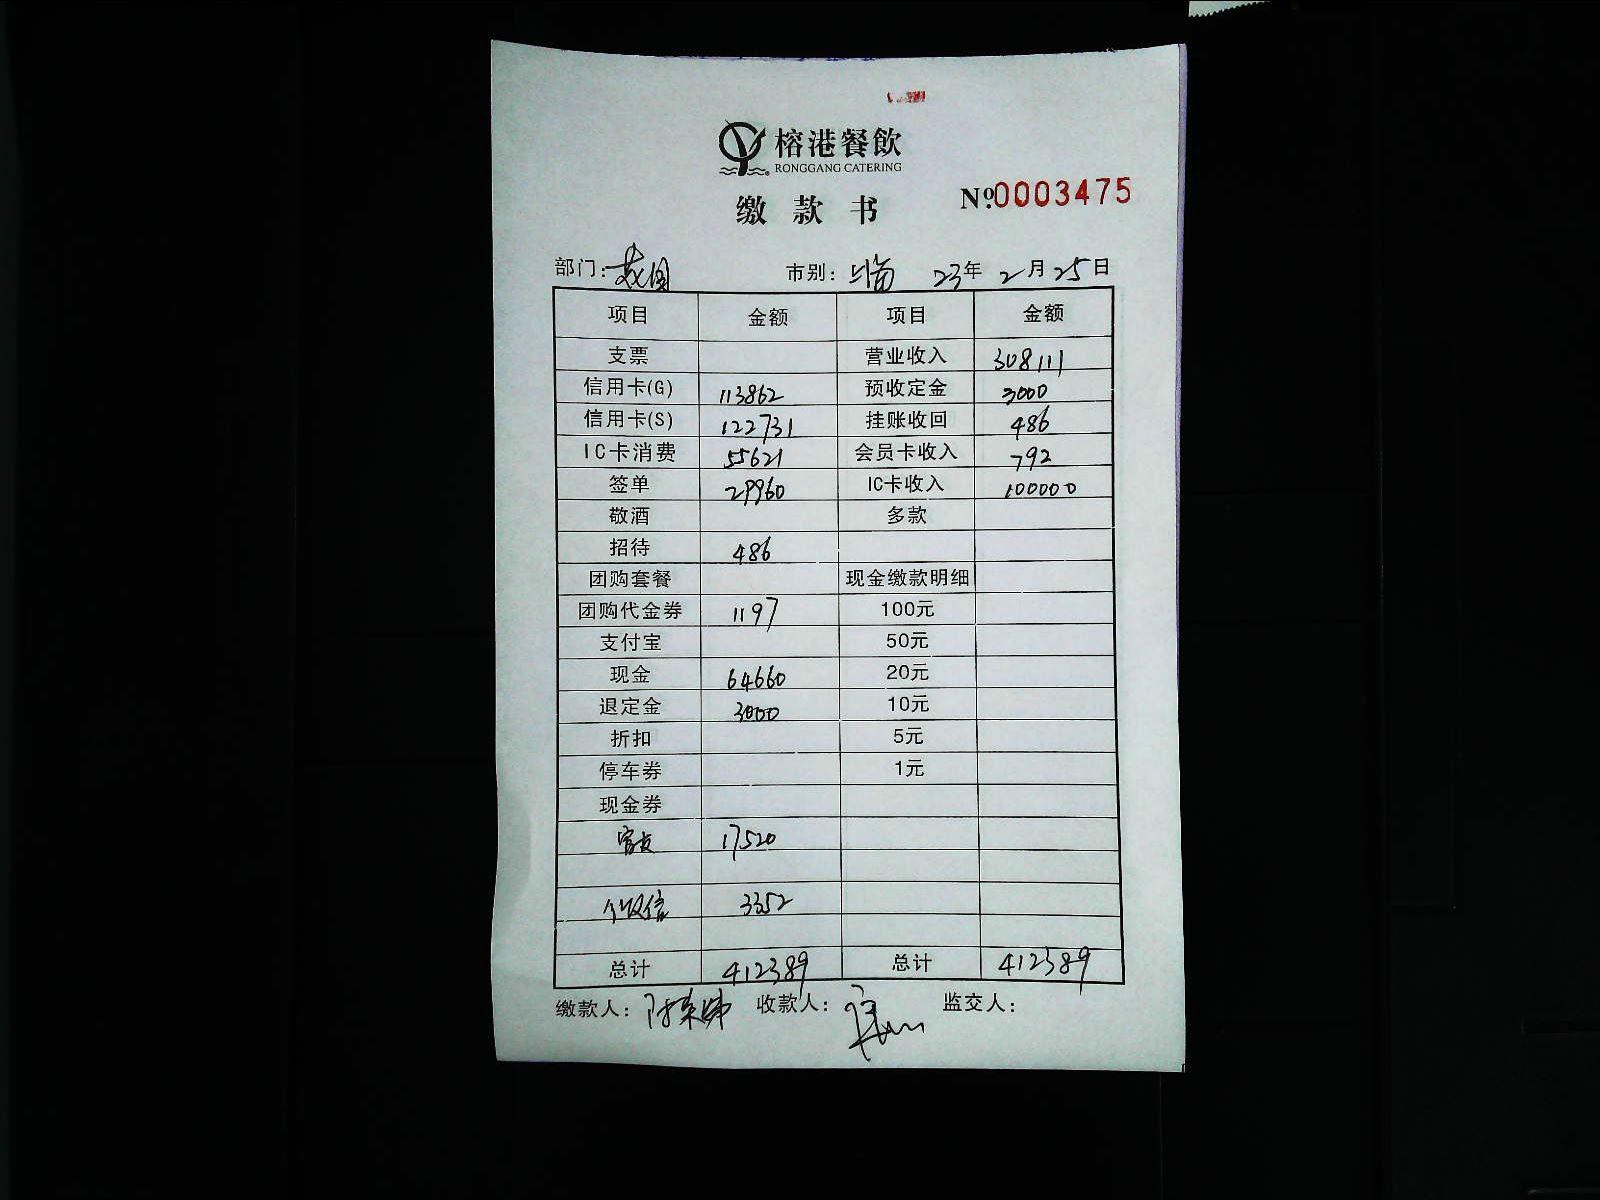 榕港餐飲
RONGGANG CATERING
缴款书
№0003475
部门: 市别: 23年2月25日
项目 金额 项目 金额
支票 营业收入 308111
信用卡(G) 113862 预收定金 3000
信用卡(S) 122731 挂账收回 486
IC卡消费 55621 会员卡收入 792
签单 29960 IC卡收入 100000
敬酒 多款
招待 486
团购套餐 现金缴款明细
团购代金券 1197 100元
支付宝 50元
现金 64660 20元
退定金 3000 10元
折扣 5元
停车券 1元
现金券
17520
3352
总计 412389 总计 412389
缴款人: 收款人: 监交人: